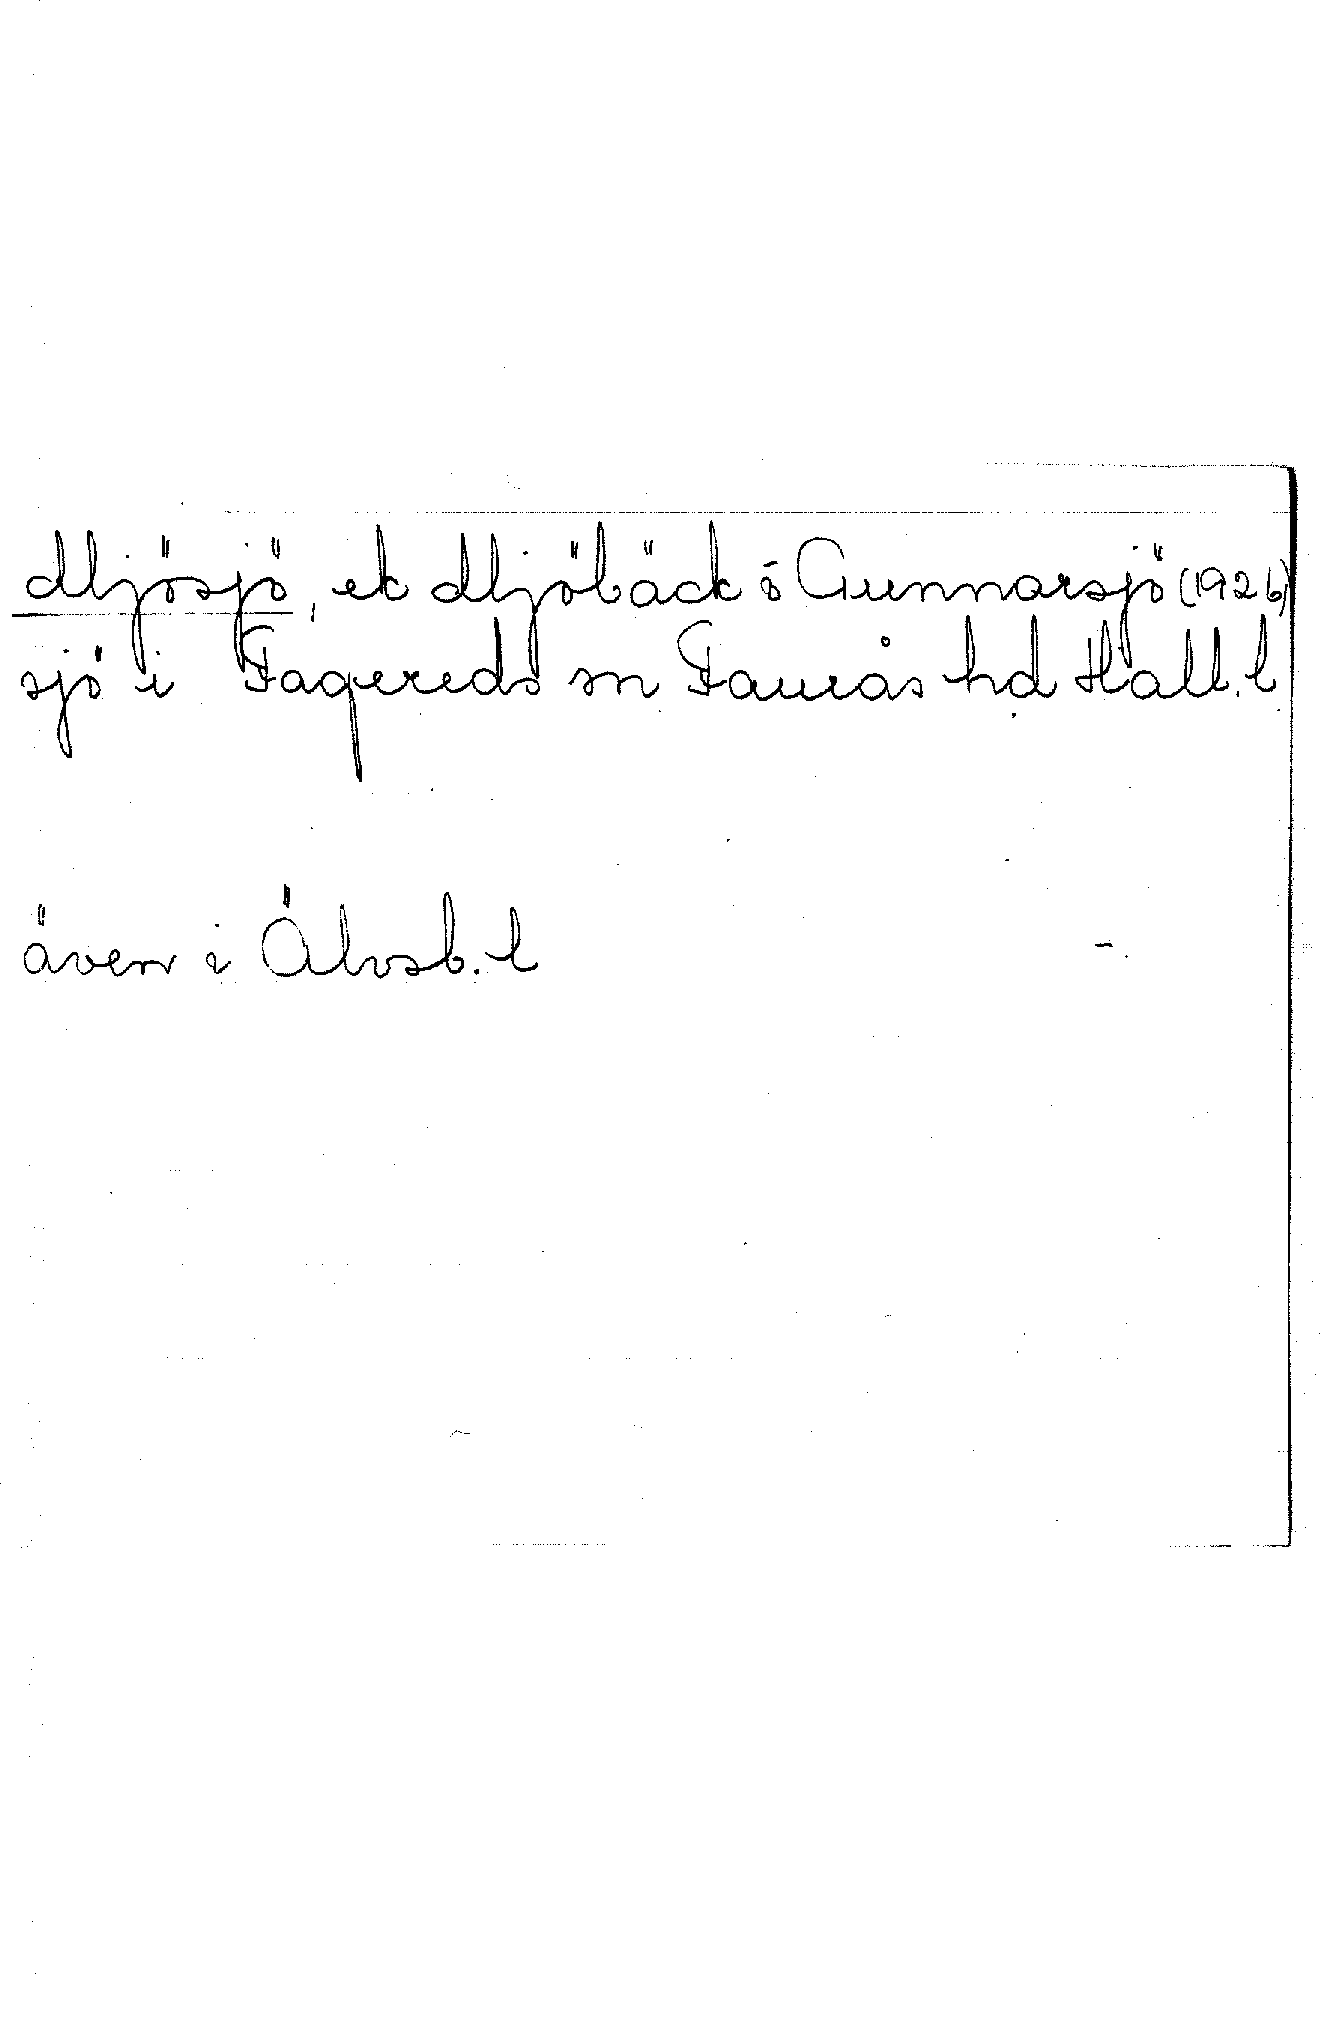 Mjösjö, ek Mjöbäck o Gunnarsjö (1926)
sjö i Fagereds sn Faurås hd Hall. l
även i Älvsb. l